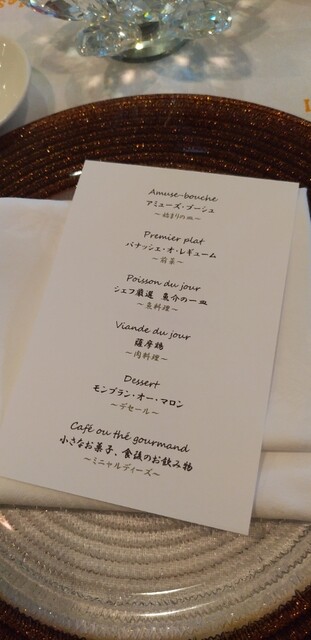 Amuse-bouche
アミューズ・ブーシュ
～始まりの皿～
Premier plat
パナッシェ・オ・レギューム
～前菜～
Poisson du jour
シェフ厳選 魚介の一皿
～魚料理～
Viande du jour
薩摩鶏
～肉料理～
Dessert
モンブラン・オー・マロン
～デセール～
Café ou thé gourmand
小さなお菓子、食後のお飲み物
～ミニャルディーズ～